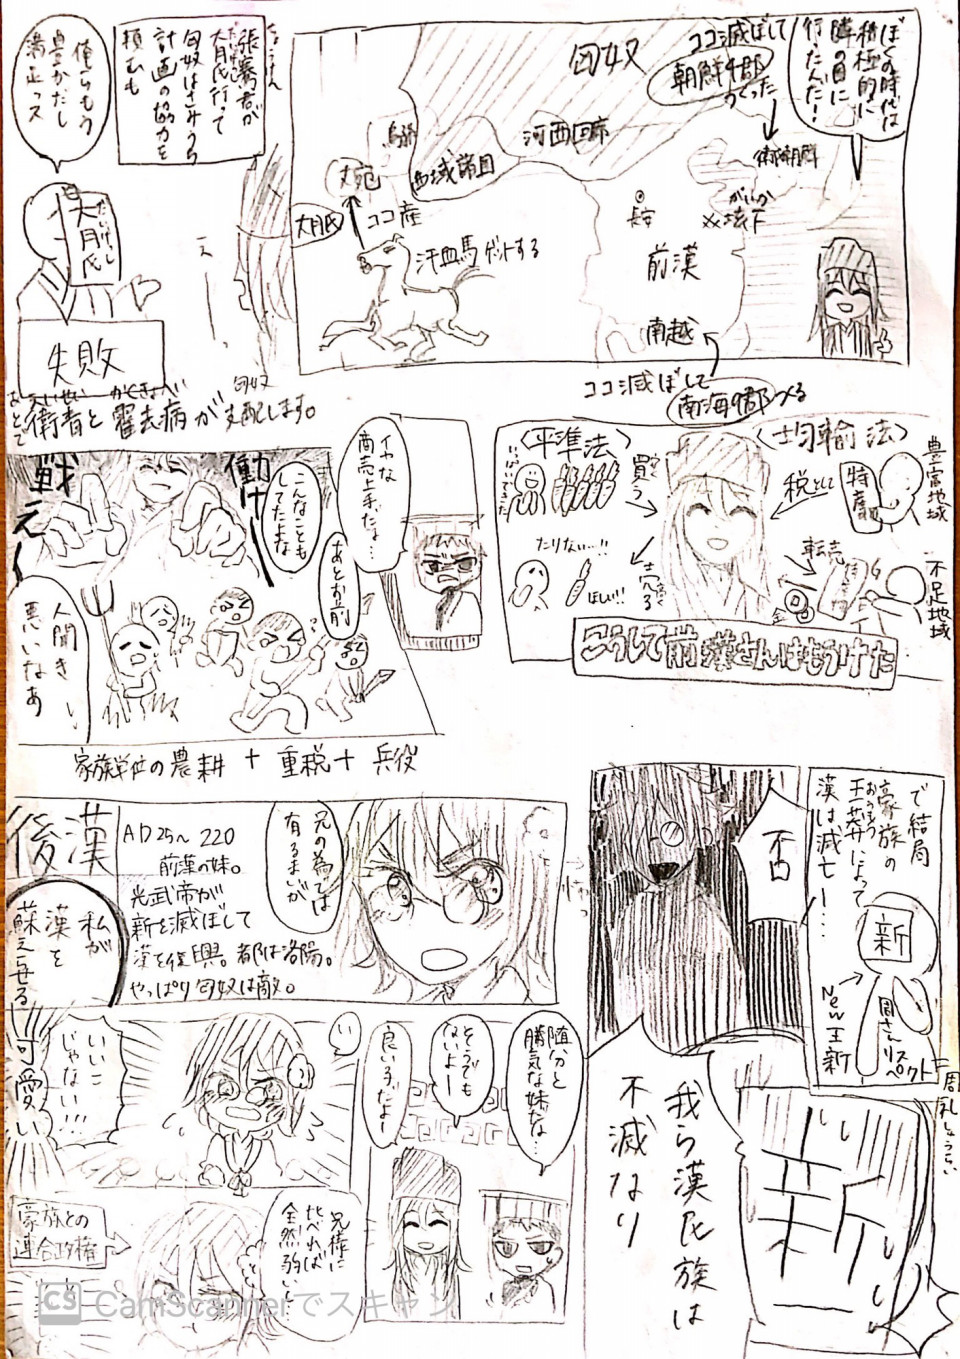 ぼくの時代は
積極的に
隣の国に
行ったんだ!
ココ滅ぼして
朝鮮4郡
つくった
衛満朝鮮
匈奴
河西回廊
烏孫
西域諸国
大宛
大月氏
ココ産
汗血馬ゲットする
長安
がいか
垓下
前漢
南越
ココ滅ぼして
南海9郡つくる
張騫君が
大月氏行って
匈奴はさみうち
計画の協力を
頼むも
俺らもう
豊かだし
満足っス
だいげっし
大月氏
失敗
えいせい かくきょへい 匈奴
あとで衛青と霍去病が支配します。
〈均輸法〉
豊富地域
特産
税として
転売
不足地域
金
〈平準法〉
いっぱいできた
買う
たりない…!!
ほしい!!
売る
こうして前漢さんはもうけた
イヤな
商売上手だな…
あとお前
こんなことも
してたよな
働けー
戦えー
人聞き
悪いなあ
家族単位の農耕 + 重税 + 兵役
で結局
豪族の
王莽によって
漢は滅亡ー…
新
New王新
周さんリスペクト
否
怖っ
我ら漢民族は
不滅なり
新
兄の為では
有るまいが
後漢
AD25〜220
前漢の妹。
光武帝が
新を滅ぼして
漢を復興。都は洛陽。
やっぱり匈奴は敵。
私が
漢を
蘇えせる
随分と
勝気な妹だな…
そうでも
ないよー
良い子だよー
いいこ
じゃない!!!
可愛い
兄様に
比べれば
全然弱いし
豪族との
連合政権
CS CamScannerでスキャン